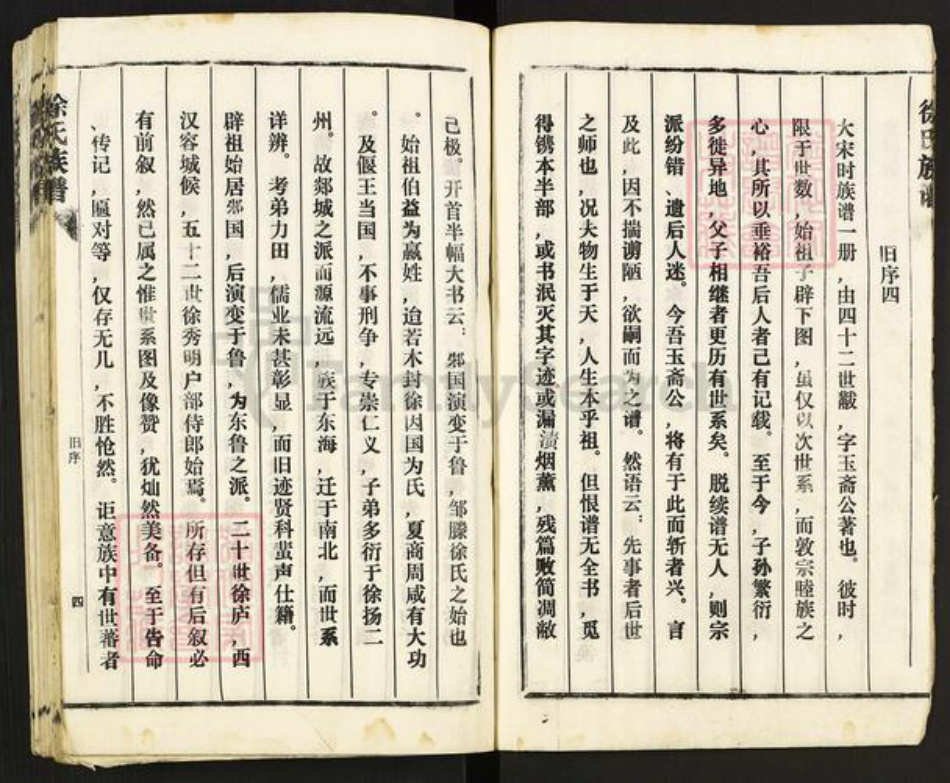 徐氏族谱
旧序四
大宋时族谱一册,由四十二世黻,字玉斋公著也。彼时,
限于世数,始祖子辟下图,虽仅以次世系,而敦宗睦族之
心,其所以垂裕吾后人者己有记载。至于今,子孙繁衍,
多徙异地,父子相继者更历有世系矣。脱续谱无人,则宗
派纷错、遗后人迷。今吾玉斋公,将有于此而斩者兴。言
及此,因不揣谫陋,欲嗣而为之谱。然语云:先事者后世
之师也,况夫物生于天,人生本乎祖。但恨谱无全书,觅
得镌本半部,或书泯灭其字迹或漏渍烟薰,残篇败简凋敝
己极。开首半幅大书云:邾国演变于鲁,邹滕徐氏之始也
。始祖伯益为嬴姓,迨若木封徐因国为氏,夏商周咸有大功
。及偃王当国,不事刑争,专崇仁义,子弟多衍于徐扬二
州。故郯城之派而源流远,族于东海,迁于南北,而世系
详辨。考弟力田,儒业未甚彰显,而旧迹贤科蜚声仕籍。
辟祖始居邾国,后演变于鲁,为东鲁之派。二十世徐庐,西
汉容城候,五十二世徐秀明户部侍郎始焉。所存但有后叙必
有前叙,然已属之惟世系图及像赞,犹灿然美备。至于告命
、传记,匾对等,仅存无几,不胜怆然。讵意族中有世蕃者
旧序
四
徐氏族谱
FamilySearch